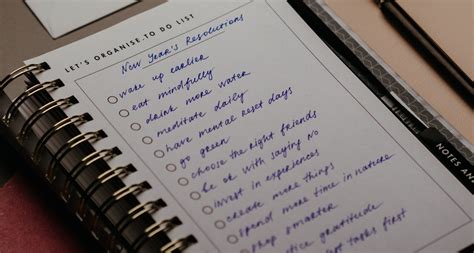 LET'S ORGANISE. TO DO LIST
New Year's Resolutions
wake up earlier
eat mindfully
drink more water
meditate daily
have mental reset days
go green
choose the right friends
be ok with saying no
invest in experiences
create more things
spend more time in nature
shop smarter
gratitude
tasks first
NOTES AND